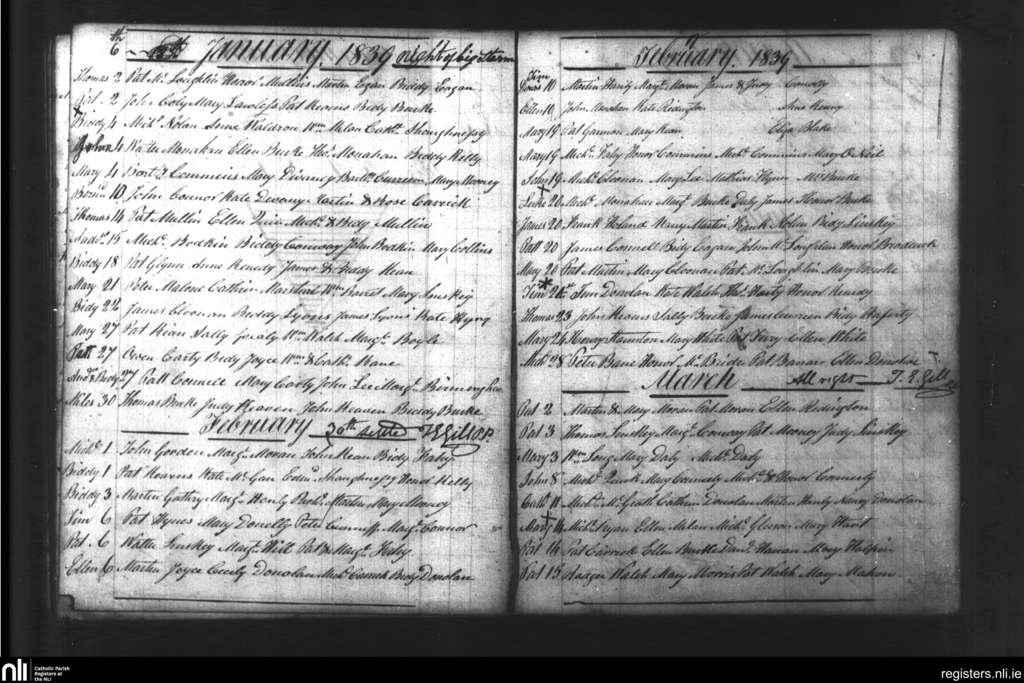 6th January. 1839
Thomas 2 Pat Mc Loughlin Honor Mullins Martin Egan Biddy Eagan
Pat. 2 John Coly Mary Lawless Pat Keavens Bidy Burke
Biddy 4 Mich. Nolan Anne Waldron Wm Nolan Cath. Shaughnessy
John 4 Watte Monahan Ellen Burke Ths. Monahan Biddy Kelly
Mary 4 Bart. Commins Mary Divany Barth. Curreen Mary Mooney
10 John Connor Kate Devany Martin & Rose Carrick
Thomas 14 Pat Mullin Ellen Quin Mich. & Bidy Mullin
Andw. 15 Mich. Bodkin Biddy Conway John Bodkin Mary Collins
Biddy 18 Pat Glynn Anne Kenedy James & Biddy Kean
Mary 21 Peter Malone Cathrin Marshal Wm Barret Mary Linskey
Bidy 22 James Cloonan Biddy Lyons James Lyons Kate Hynes
Mary 27 Pat Kean Sally Geraly Wm Walsh Margt. Boyle
Patt 27 Owen Carty Bidy Joyce Wm & Cath. Kane
And. & Bidy 27 Patt Connell Mary Carty John Lee Margt. Birmingham
Miles 30 Thomas Burke Judy Heaven John Heaven Biddy Burke
February 30th settld T E Gill P.P.
Mich. 1 John Gordon Margt. Moran John Kean Bidy Fahy
Biddy 1 Pat Keavens Kate Mc Gan Edw. Shaughnessy Honor Kelly
Biddy 3 Martin Margt. Hanly Mary Mooney
Tim 6 Pat Hynes Mary Donelly Peter Margt. Connor
Pat. 6 Watte Linskey Margt. Pat & Margt. Fahy
Ellen 6 Martin Joyce Cecily Donolan Mich. Carrick Bidy Donolan
February. 1839
James 10 Martin Hanly Margt. Moran James & Judy Conroy
Ellen 10 John Kate Redington Anne Keany
Mary 19 Pat Gannon Mary Kean Eliza Blake
Mary 19 Mich. Fahy Honor Commins Mich. Commins Mary O Neil
John 19 Mich. Cloonan Mary Lee Mathias Flynn Burke
Luke 20 Mich. Monahan Margt. Burke James Honor Burke
James 20 Frank Noland Mary Martin Frank Nolan Bidy Linskey
Patt 20 James Connell Bidy Eagan John Mc Loughlin Honor Broderick
Mary 20 Pat Martin Mary Cloonan Pat. Mc Loughlin Mary Burke
Tim 21st Tim Donolan Kate Walsh Ths. Harty Honor Kenedy
Thomas 23 John Keans Sally Burke James Curreen Bidy Raferty
Mary 24 Henry Staunton Mary White Pat Fery Ellen White
Mich 28 Peter Bane Honor Mc Bride Pat Banan Ellen Donolan
March All right T. E. Gill
Pat 2 Martin & Mary Moran Pat Moran Ellen Redington
Pat 3 Thomas Linskey Margt. Conway Pat Mooney Judy Linskey
Mary 3 Wm Long Mary Daly Mich. Daly
John 8 Mich. Quirk Mary Connerly Mich. & Honor Connerly
Cath 11 Mich. Mc Grath Cathrin Donolan Martin Hanly Nancy Donolan
Mary 14 Mich. Ryan Ellen Nolan Mich. Gleeson Mary Want
Pat 14 Pat Carrick Ellen Burke Danl. Hanan Mary Halpin
Pat 15 Rodger Walsh Mary Morris Pat Walsh Mary Mahon
nli Catholic Parish
Registers at
the NLI
registers.nli.ie